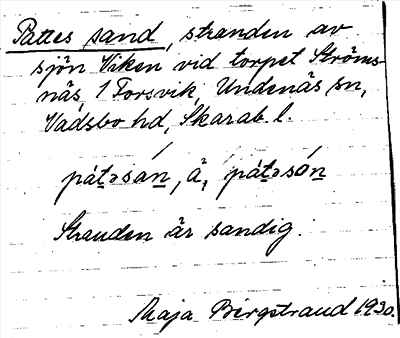 Pattes sand, stranden av
sjön Viken vid torpet Ströms-
näs, 1 Forsvik, Undenäs sn,
Vadsbo hd, Skarab. l.
pát̲əsán̲, å, pát̲əsón̲
Stranden är sandig.
Maja Bergstrand 1930.